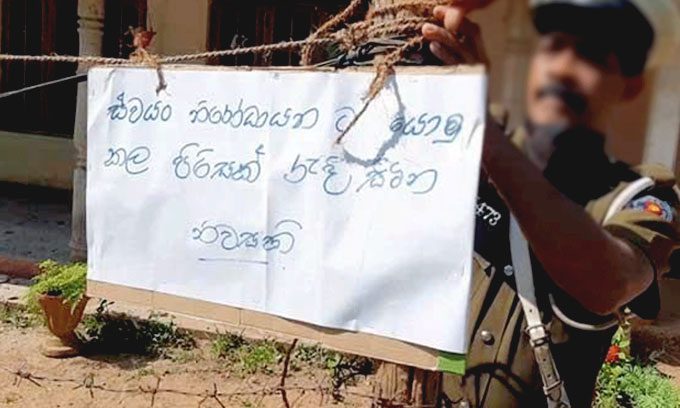 ස්වයං නිරෝධායන ට යොමු
කල පිරිසක් රැඳී සිටින
නිවසකි
473